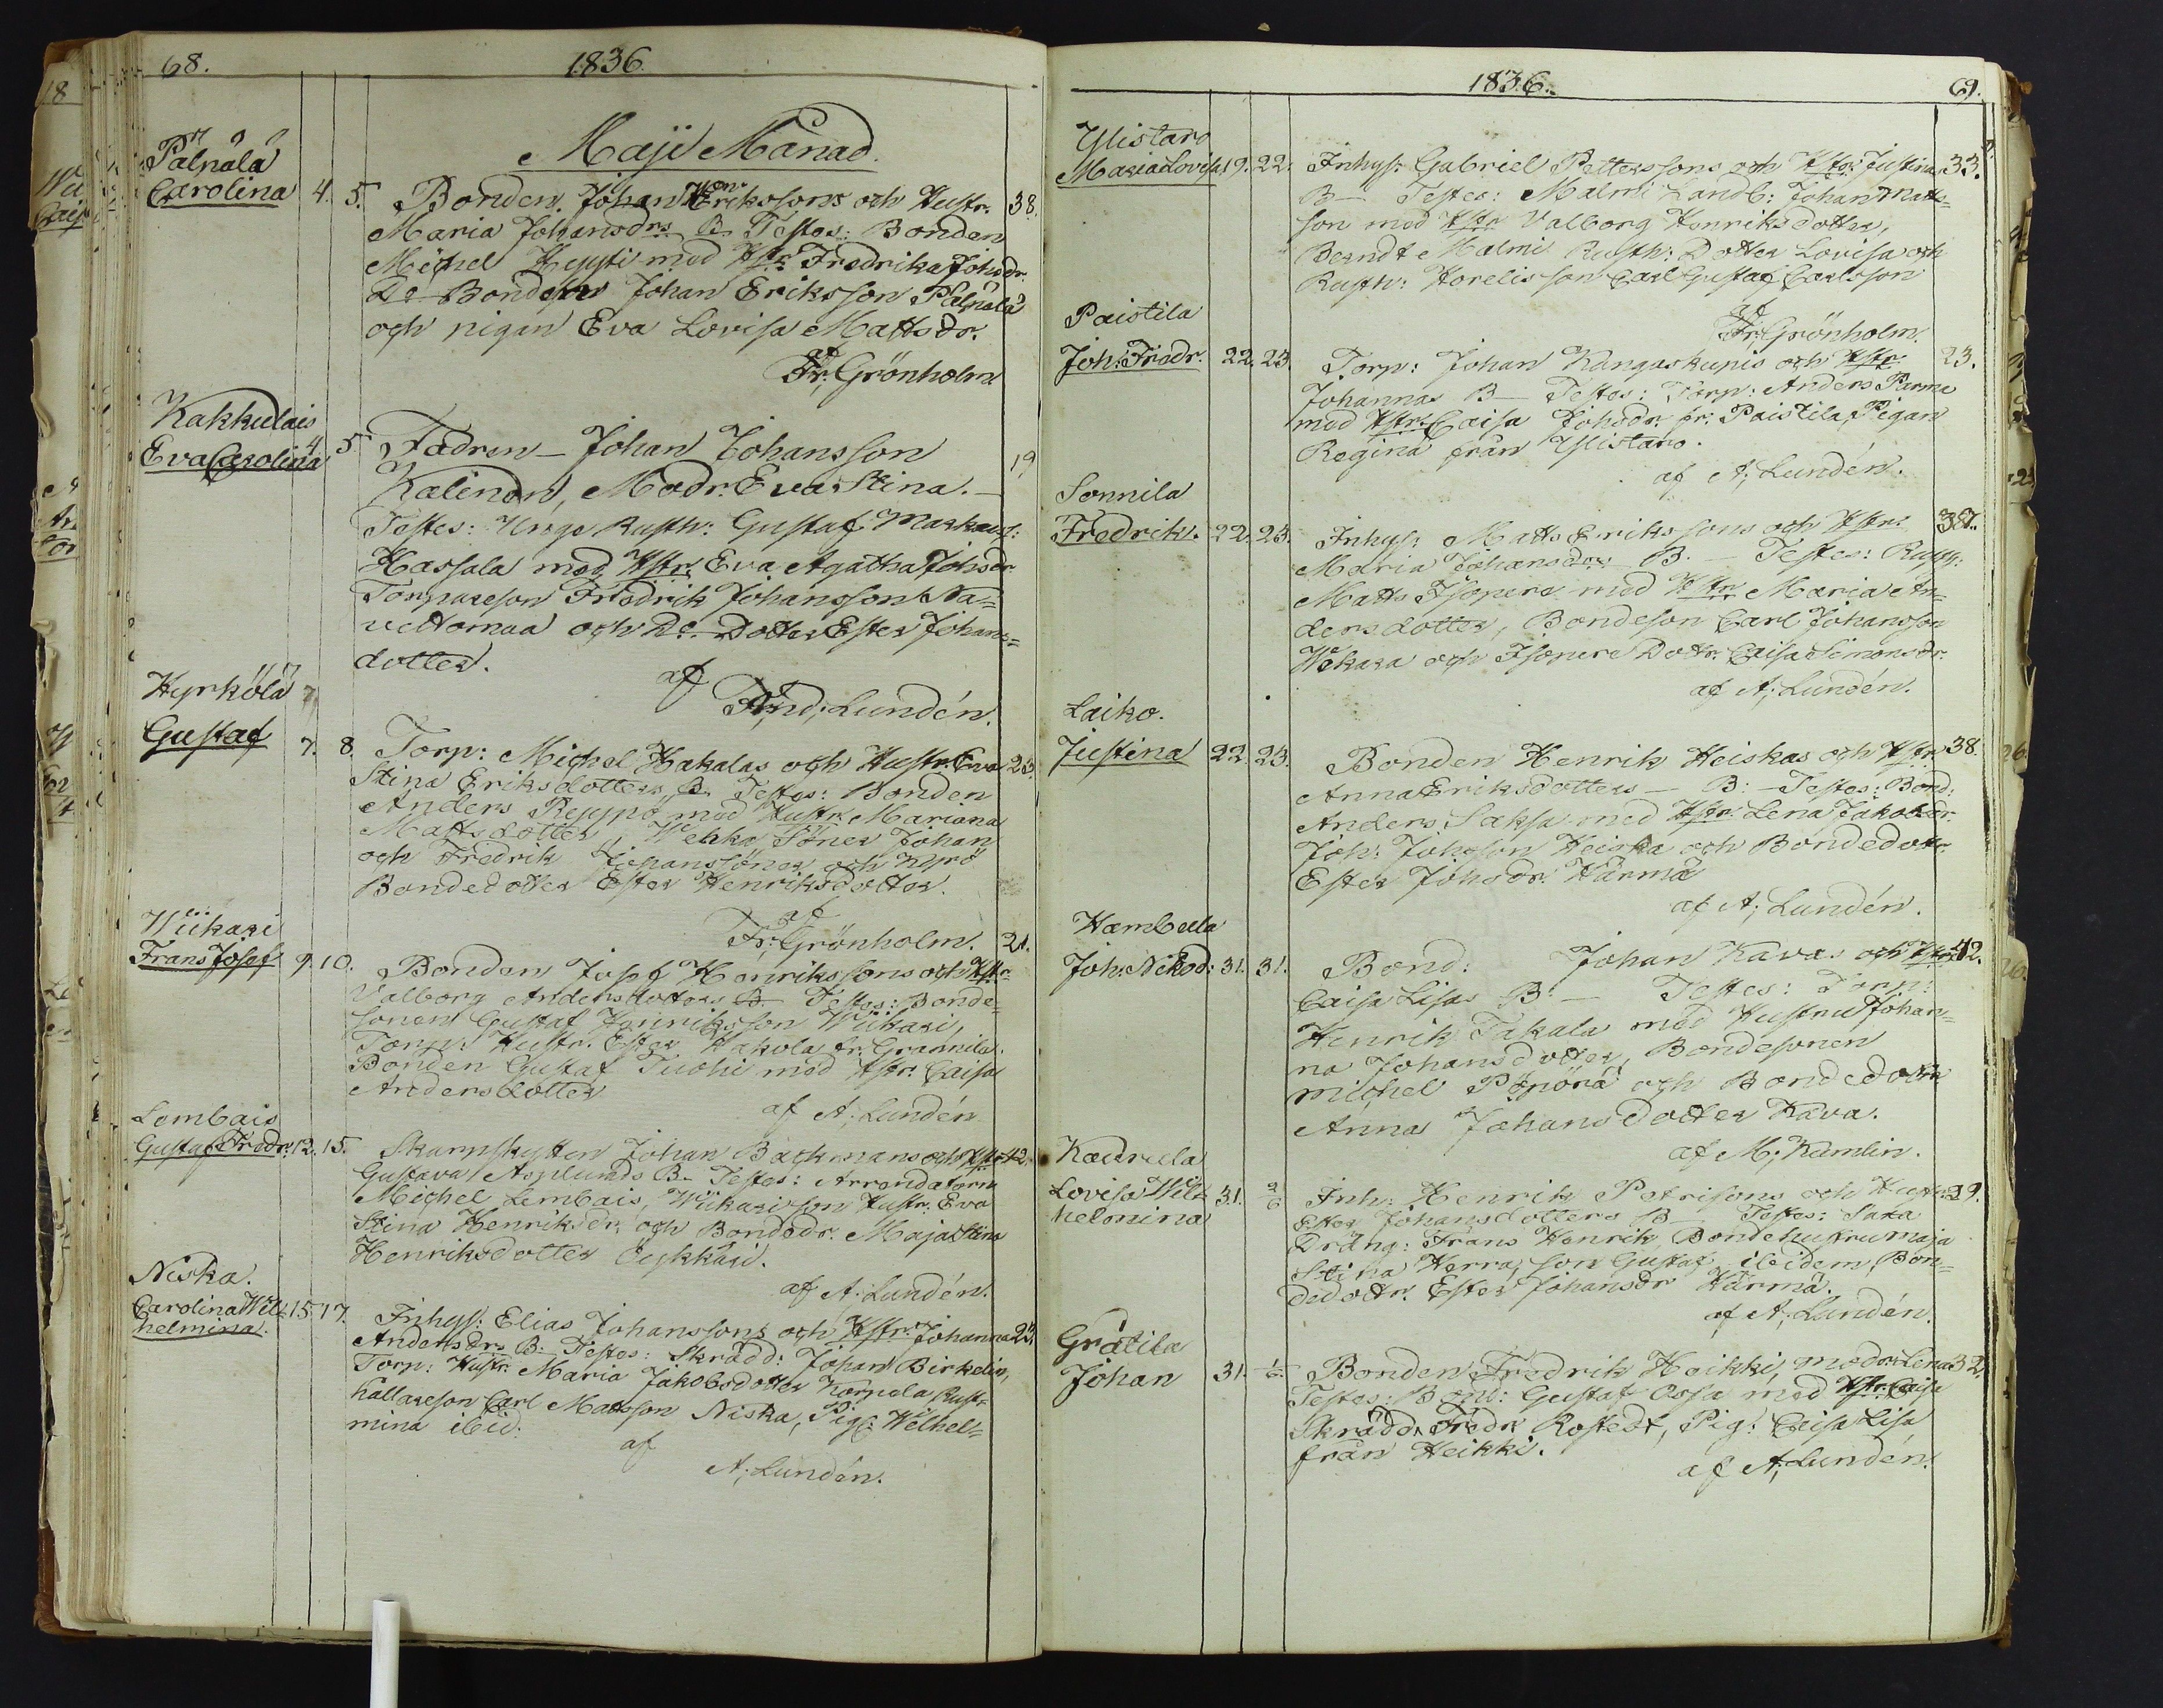 68.
1836.
Maji Månad.
Pälpälä
Carolina 4. 5. Bonden Johan Erikssons och Hustr. 38.
Maria Johansdrs B. Testes: Bonden
Michel Hyyti med Hstr Fredrika Johsdr.
Do Bondeson Johan Eriksson Pälpälä
och pigan Eva Lovisa Mattsdr.
af
Fr: Grönholm
Kakkulais
Eva Carolina 4. 5. Fadren - Johan Johansson 19
Kalinen, Modr. Eva Stina. -
Testes: Unge Rusth: Gustaf
Hassala med Hstr. Eva Agatha Johsdr
Torpareson Fredrik Johansson Na=
vettomaa och Do Dotter Ester Johans=
dotter.
af
And; Lundén.
Kyrkölä
Gustaf 7. 8. Torp: Michel Hakalas och Hustr. Eva 23.
Stina Eriksdotters B. Testes: Bonden
Anders Reppo med Hustr. Mariana
Mattsdotter, Söner Johan
och Fredrik Johanssöner och
Bondedotter Ester Henriksdotter.
af
Fr: Grönholm.
Wiikari
Frans Josef 9. 10. Bonden Josef Henrikssons och Hstr 21.
Valborg Andersdotters B. Testes: Bonde=
sonen Gustaf Henriksson Wiikari,
Torp: Hustr. Ester Hakola fr. Grannila
Bonden Gustaf Tuohi med Hstr. Caisa
Andersdotter
af A; Lundén
Lembais
Gustaf Fredr. 12. 15. Skarpskytten Johan Backmans och Hstr 42.
Gustava Asplunds B. Testes: Arrendatorn
Michel Lembais, Wiikari son Hustr. Eva
Stina Henriksdr. och Bondedr. Maja Stina
Henriksdotter
af A; Lundén.
Niska.
Carolina Wil= 15. 17. Inhys: Elias Johanssons och Hstr. Johanna 23.
helmina. Andersdrs B. Testes: Skrädd: Johan Birkelin,
Torp: Hustr. Maria Jakobsdotter Korpela
Kallareson Carl Matsson Niska, Pig: Wilhel=
mina ibid:
af
A; Lundén.
1836.
69.
Ylistaro
Maria Lovisa 19. 22. Inhys: Gabriel Petterssons och Hstr: Justina 33.
B- Testes: Malmi Landb: Johan Matts=
son med Hstr Valborg Henriksdotter,
Berndt Malmi Rusth: Dotter Lovisa och
Rusth: son Carl Gustaf Carlsson
af
Fr; Grönholm.
Paistila
Joh: Fredr. 22. 23. Torp: Johan Kangaskunis och Hstr 23.
Johannas B- Testes: Torp: Anders Parma
med Hstr. Caisa Johsdr. fr: Paistila, Pigan
Regina från Ylistaro.
af A; Lundén.
Sonnila
Fredrik. 22. 23. Inhys: Matts Erikssons och Hstr: 37.
Maria Johansdrs B. - Testes:
Matts Isopere med Hstr. Maria An=
dersdotter, Bondeson Carl Johansson
och Isopere Dotr. Caisa Simonsdr.
af A; Lundén.
Laiko.
Justina 22. 23. Bonden Henrik Heiskas och Hstr 38.
Anna Eriksdotters - B: - Testes: Bond:
Anders Saksa med Hstr. Lena Jakobsdr.
Joh: Johsson Heiska och Bondedotr.
Ester Johsdr. Härmä
af A; Lundén.
Hambula
Joh: Nikod: 31. 31. Bond: Johan Kavas och Hstr 42.
Caisa Lisas B: - Testes: Torp:
Henrik Takala med Hustru Johan=
na Johansdotter, Bondesonen
Michel Pöpönä och Bondedottr
Anna Johansdotter Kava.
af M; Kamlin.
Kaurula
Lovisa Wil= 31. 2/6 Inh: Henrik Petrisons och Hustr 29.
helmina Ester Johansdotters B- Testes:
Dräng: Frans Henrik, Bondehustru Maja
Stina Herra, son Gustaf ibidem, Bon=
dedotr. Ester Johansdr Härmä.
af A; Lundén.
Grätila
Johan 31. 1/6 Bonden Fredrik Heikki, modr. Lena 32.
Testes: Bond: Gustaf Ossa med Hstr. Caisa
Skrädd. Fredr. Rostedt, Pig: Caisa Lisa
från Heikki.
af A; Lundén.